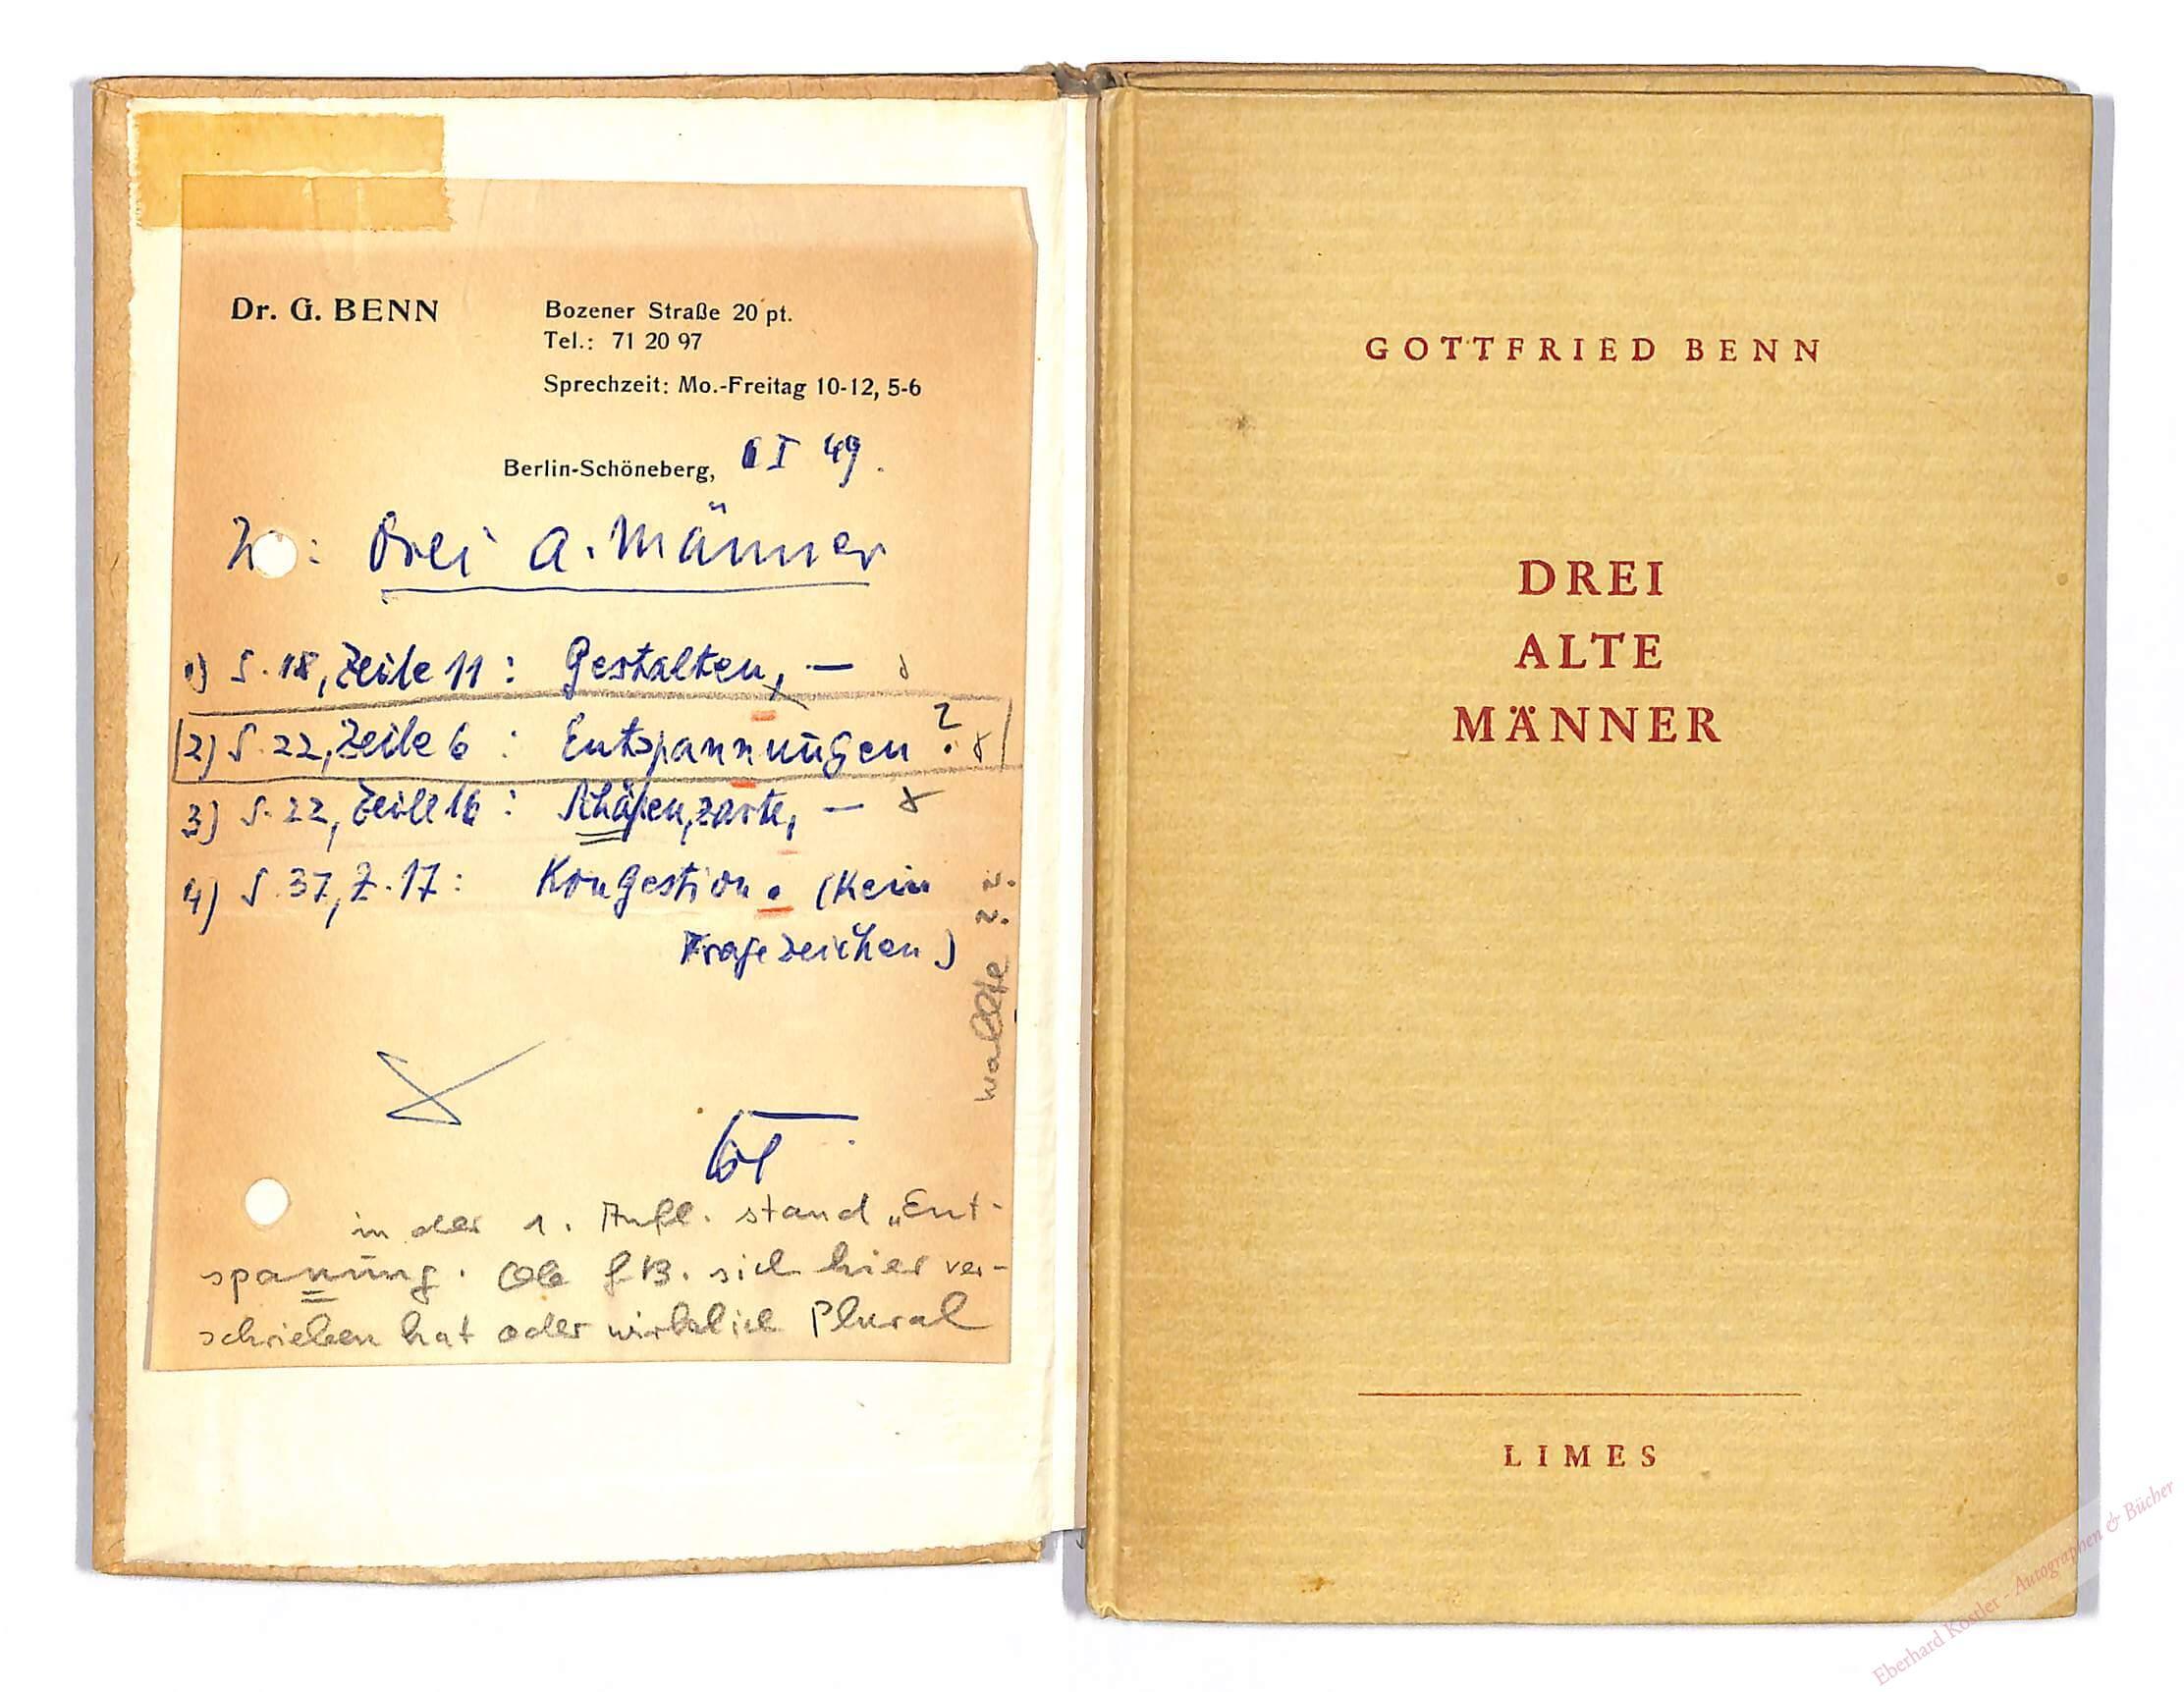 Dr. G. BENN
Bozener Straße 20 pt.
Tel.: 71 20 97
Sprechzeit: Mo.-Freitag 10-12, 5-6
Berlin-Schöneberg, I 49.
Drei a. Männer
1) S. 18, Zeile 11: Gestalten, —
2) S. 22, Zeile 6: Entspannungen ?
3) S. 22, Zeile 16: zarte, —
4) S. 37, Z. 17: Kongestion. (Kein
Fragezeichen)
in der 1. Aufl. stand „Ent-
spannung. Ob GB. sich hier ver-
schrieben hat oder wirklich Plural
wollte
GOTTFRIED BENN
DREI
ALTE
MÄNNER
LIMES
Eberhard Köstler - Autographen & Bücher